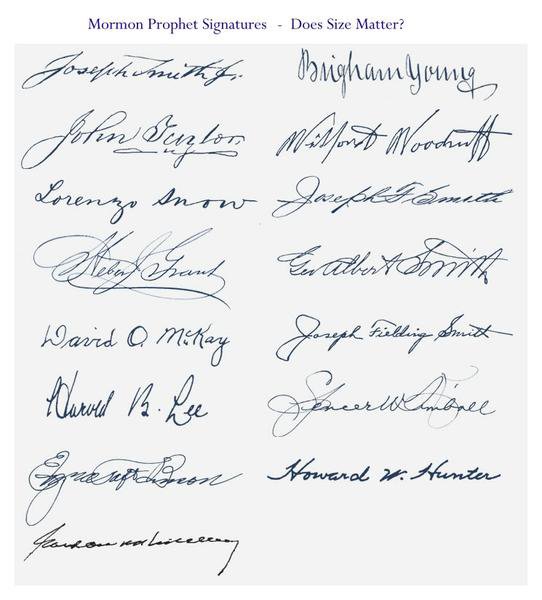 Mormon Prophet Signatures - Does Size Matter?
Joseph Smith Jr.
Brigham Young
John Taylor
Wilford Woodruff
Lorenzo Snow
Joseph F Smith
Heber J Grant
Geo Albert Smith
David O. McKay
Joseph Fielding Smith
Harold B. Lee
Spencer W Kimball
Ezra Taft Benson
Howard W. Hunter